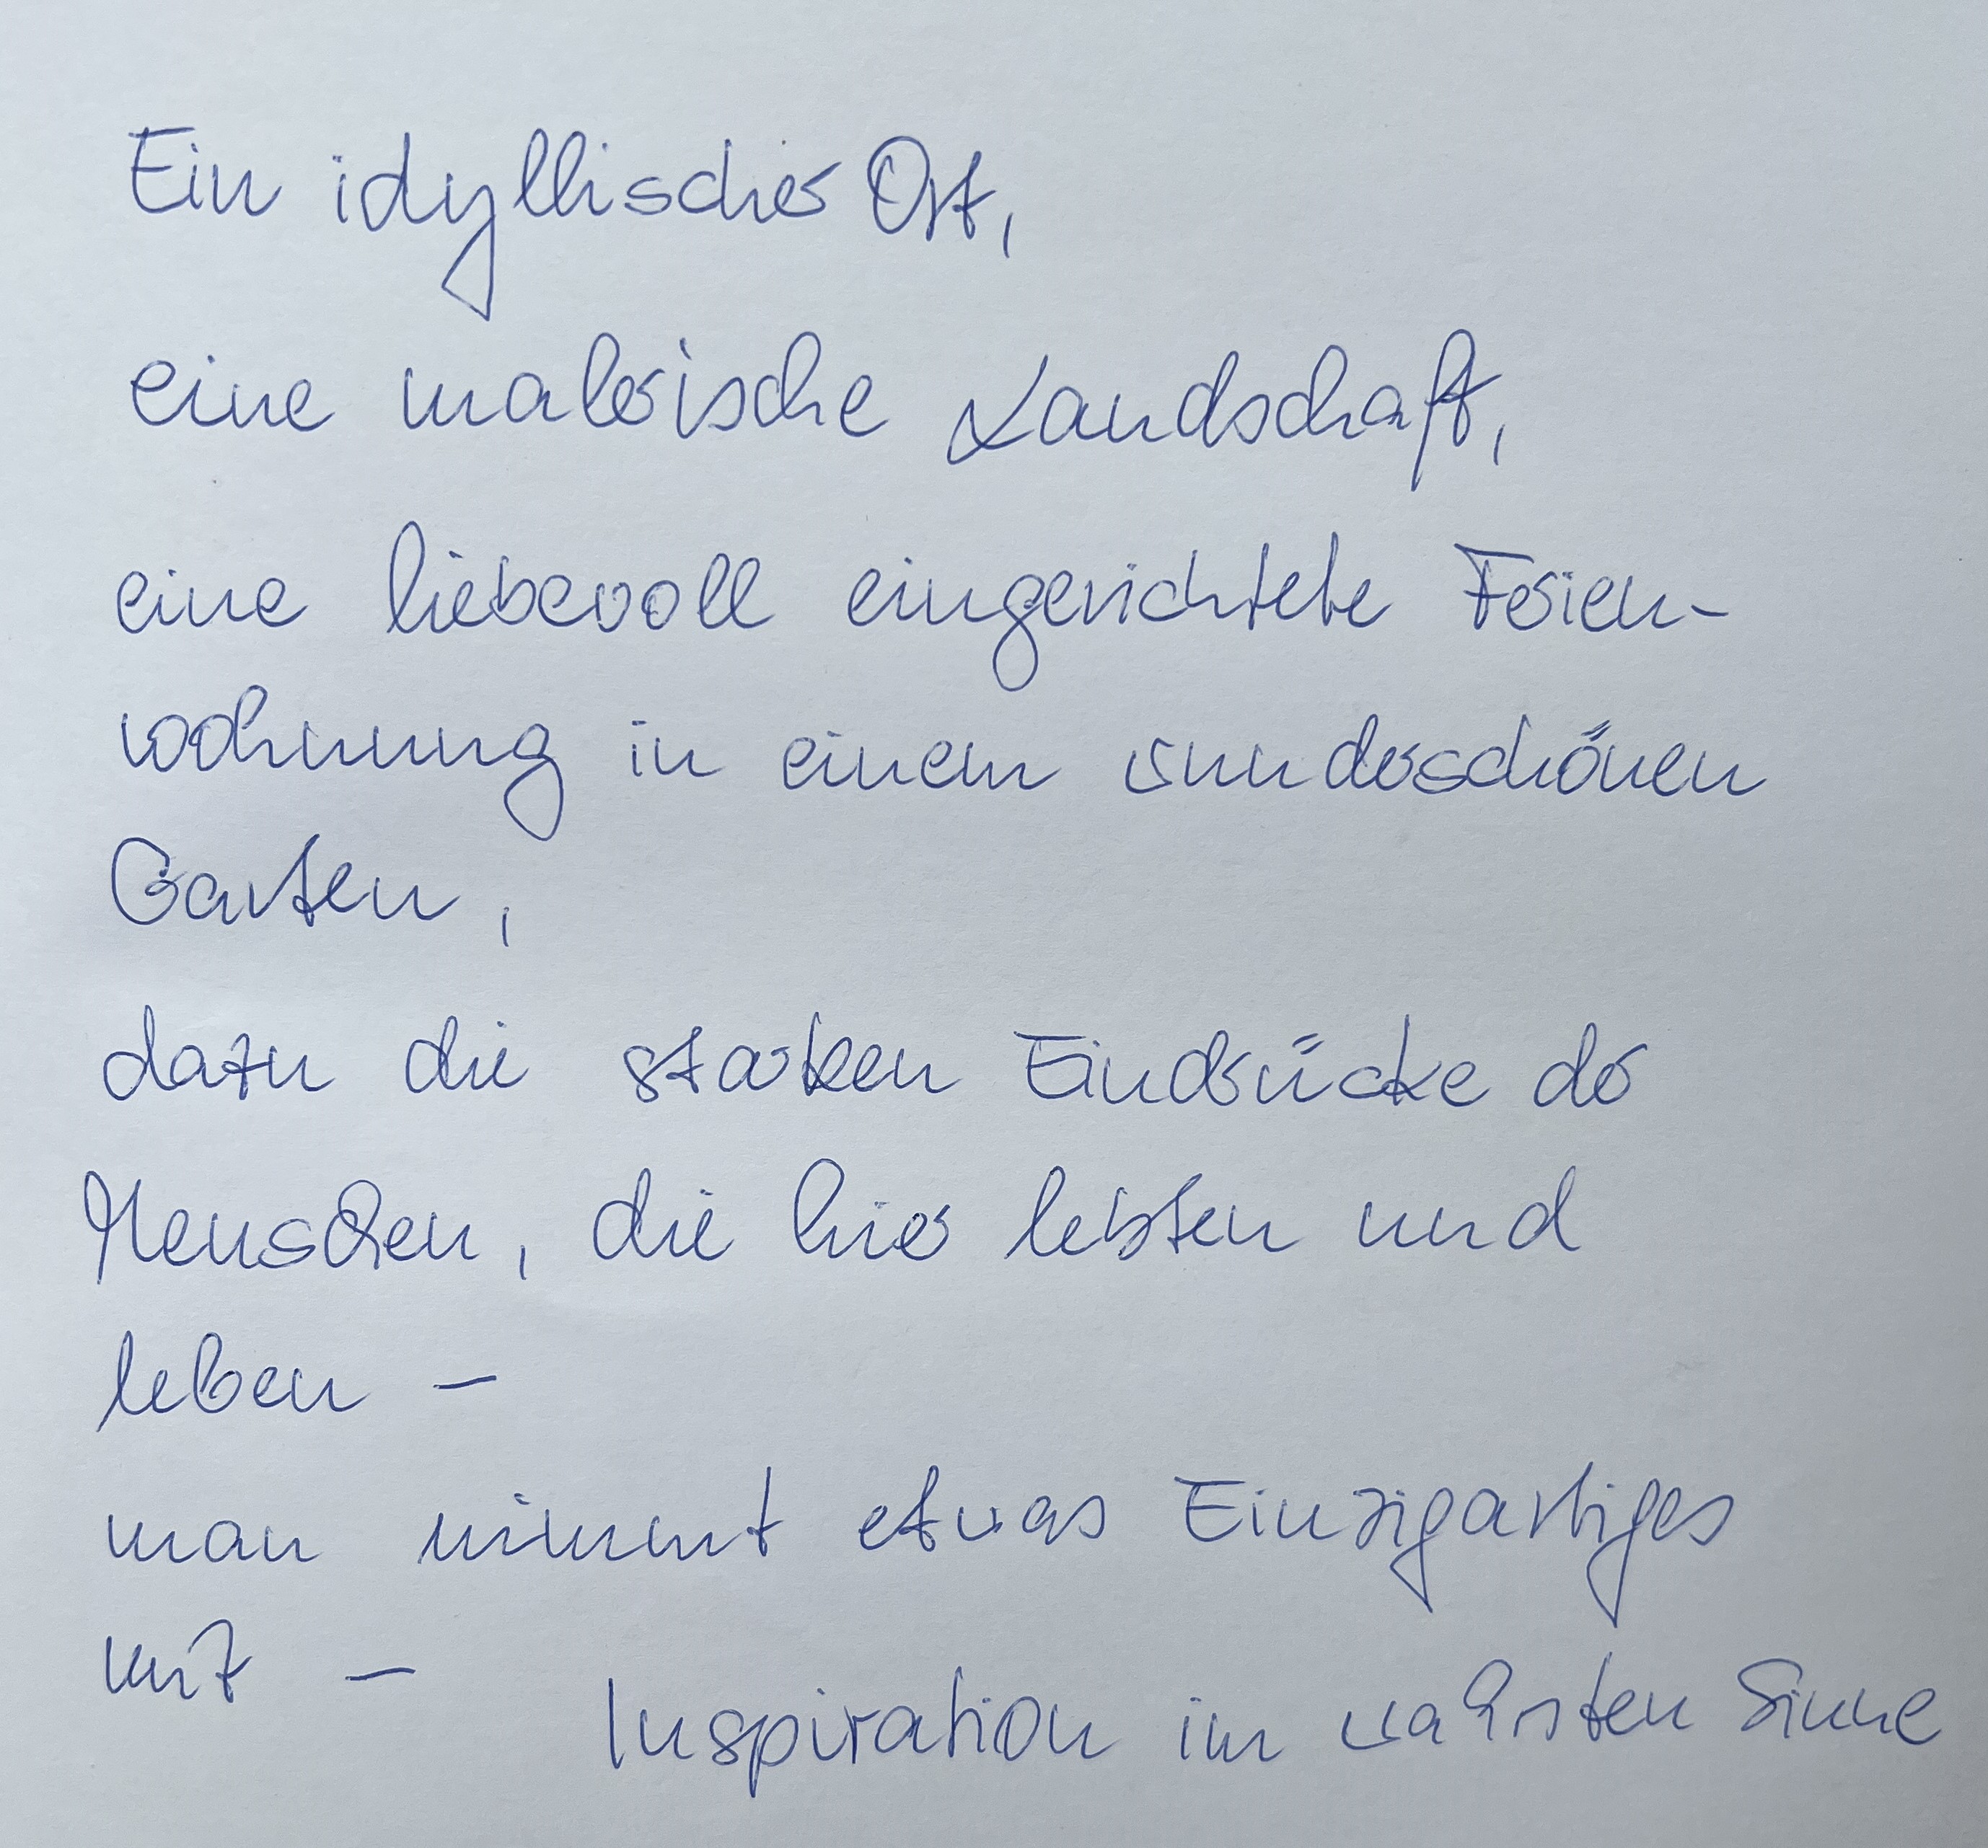 Ein idyllischer Ort,
eine malerische Landschaft,
eine liebevoll eingerichtete Ferien-
wohnung in einem wunderschönen
Garten,
dazu die starken Eindrücke der
Menschen, die hier lebten und
leben –
man nimmt etwas Einzigartiges
mit –
Inspiration im wahrsten Sinne